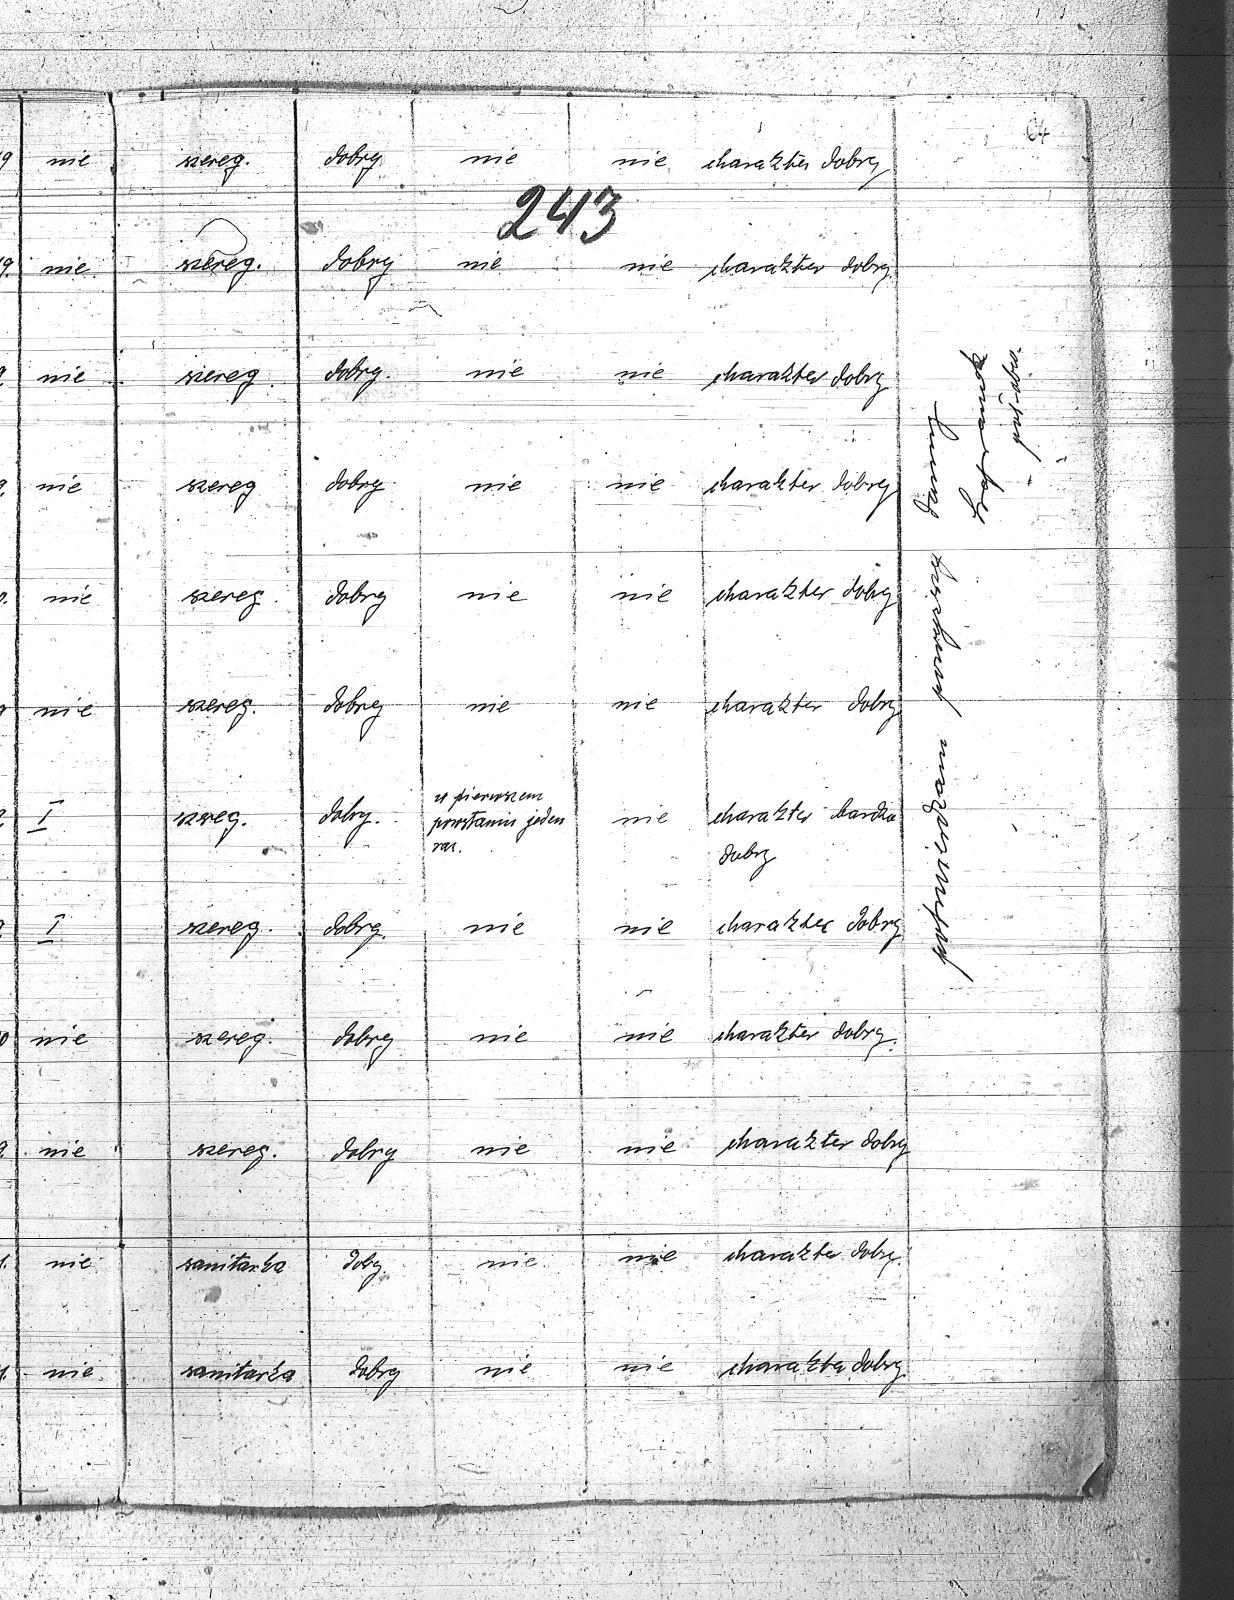 64
9 nie szereg. dobry nie nie charakter dobry
243
9. nie szereg. dobry nie nie charakter dobry
9. nie szereg dobry. nie nie charakter dobry
9. nie szereg dobry nie nie charakter dobry
nie szereg. dobry nie nie charakter dobry
nie szereg. dobry nie nie charakter dobry
I szereg. dobry. w pierwszem
powstaniu jeden
raz. nie charakter bardzo
dobry
I szereg. dobry. nie nie charakter dobry
0 nie szereg. dobry nie nie charakter dobry.
9. nie szereg. dobry nie nie charakter dobry
1. nie sanitarka dobry. nie nie charakter dobry.
1. nie sanitarka dobry nie nie charakter dobry